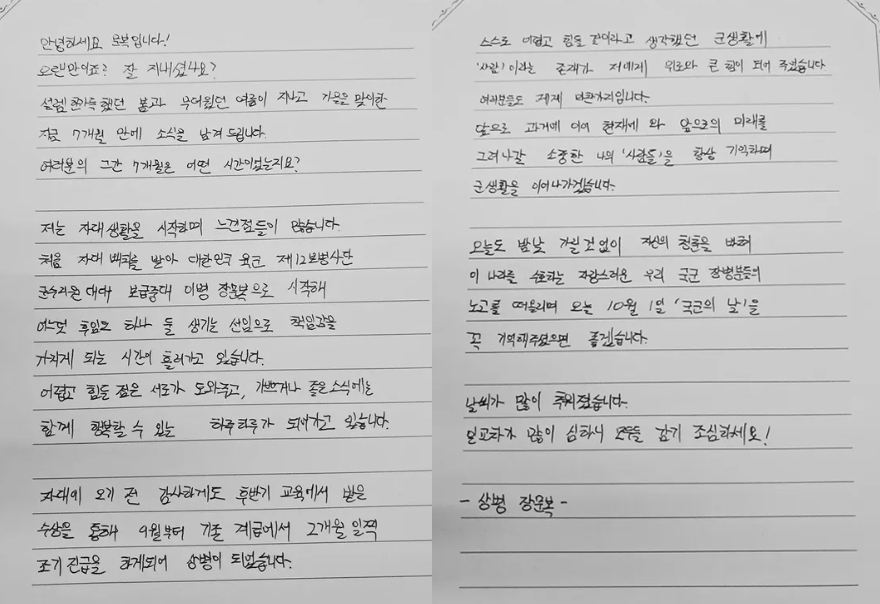 안녕하세요 운복입니다!
오랜만이죠? 잘 지내셨나요?
설렘 한가득했던 봄과 무더웠던 여름이 지나고 가을을 맞이한
지금 7개월 만에 소식을 남겨 드립니다.
여러분의 그간 7개월은 어떤 시간이었는지요?
저는 자대생활을 시작하며 느낀점들이 많습니다.
처음 자대 배치를 받아 대한민국 육군 제12보병사단
군수지원대대 보급중대 이병 장운복으로 시작해
어느덧 후임도 하나 둘 생기는 선임으로 책임감을
가지게 되는 시간이 흘러가고 있습니다.
어렵고 힘든 점은 서로가 도와주고, 기쁘거나 좋은 소식에는
함께 행복할 수 있는 하루하루가 되어가고 있습니다.
자대에 오기 전 감사하게도 후반기 교육에서 받은
수상을 통해 9월부터 기존 계급에서 2개월 일찍
조기진급을 하게되어 상병이 되었습니다.
스스로 어렵고 힘들 것이라고 생각했던 군생활에
'사람'이라는 존재가 저에게 위로와 큰 힘이 되어 주었습니다
여러분들도 제게 마찬가지입니다.
앞으로 과거에 이어 현재에 와 앞으로의 미래를
그려나갈 소중한 나의 '사람들'을 항상 기억하며
군생활을 이어나가겠습니다.
오늘도 밤낮 가릴것없이 자신의 청춘을 바쳐
이 나라를 수호하는 자랑스러운 우리 국군 장병분들의
노고를 떠올리며 오는 10월 1일 '국군의 날'을
꼭 기억해주셨으면 좋겠습니다.
날씨가 많이 추워졌습니다.
일교차가 많이 심하니 모두들 감기 조심하세요!
- 상병 장운복 -